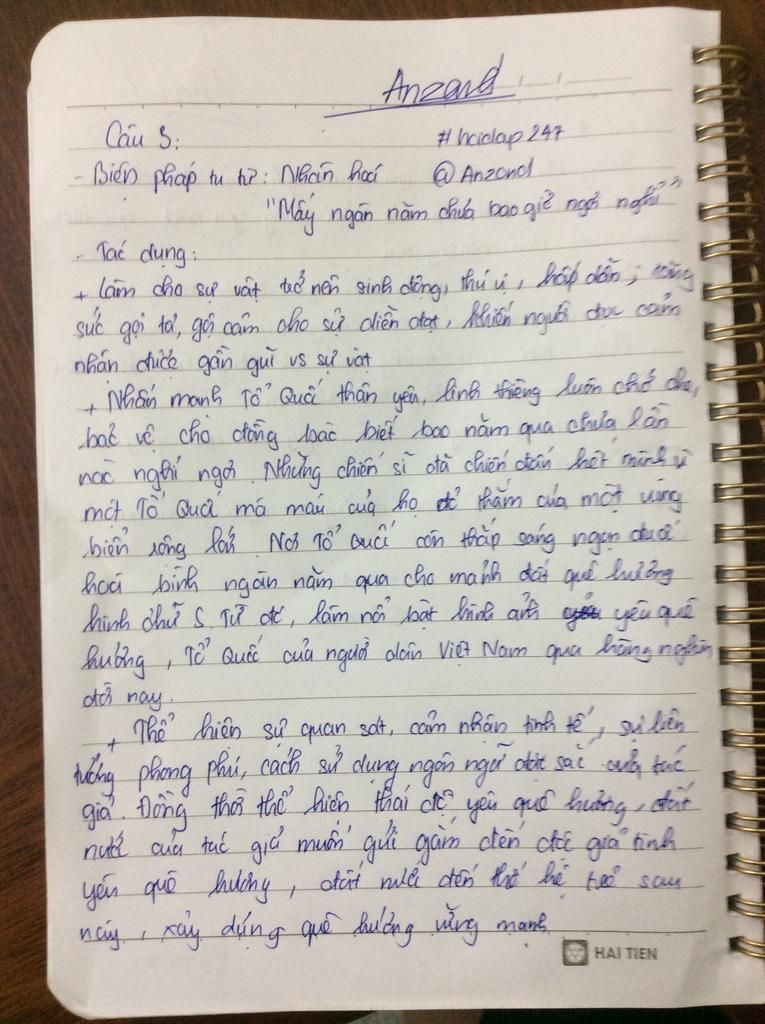 Anzond
Câu 3: #hoidap247
- Biện pháp tu từ: Nhân hoá @Anzond
"Mấy ngàn năm chưa bao giờ ngơi nghỉ"
- Tác dụng:
+ Làm cho sự vật trở nên sinh động, thú vị, hấp dẫn; tăng
sức gợi tả, gợi cảm cho sự diễn đạt, khiến người đọc cảm
nhận được gần gũi vs sự vật
+ Nhấn mạnh Tổ Quốc thân yêu, linh thiêng luôn chở che,
bảo vệ cho đồng bào biết bao năm qua chưa lần
nào nghỉ ngơi. Những chiến sĩ đã chiến đấu hết mình vì
một Tổ Quốc mà máu của họ đỏ thắm của một vùng
biển rộng lớn. Nơi Tổ Quốc còn thắp sáng ngọn đuốc
hoà bình ngàn năm qua cho mảnh đất quê hương
hình chữ S. Từ đó, làm nổi bật hình ảnh yêu quê
hương, Tổ Quốc của người dân Việt Nam qua hàng nghìn
đời nay.
+ Thể hiện sự quan sát, cảm nhận tinh tế, sự liên
tưởng phong phú, cách sử dụng ngôn ngữ đặc sắc của tác
giả. Đồng thời thể hiện thái độ yêu quê hương, đất
nước của tác giả muốn gửi gắm đến độc giả tình
yêu quê hương, đất nước đến thế hệ trẻ sau
này, xây dựng quê hương vững mạnh
HAI TIEN